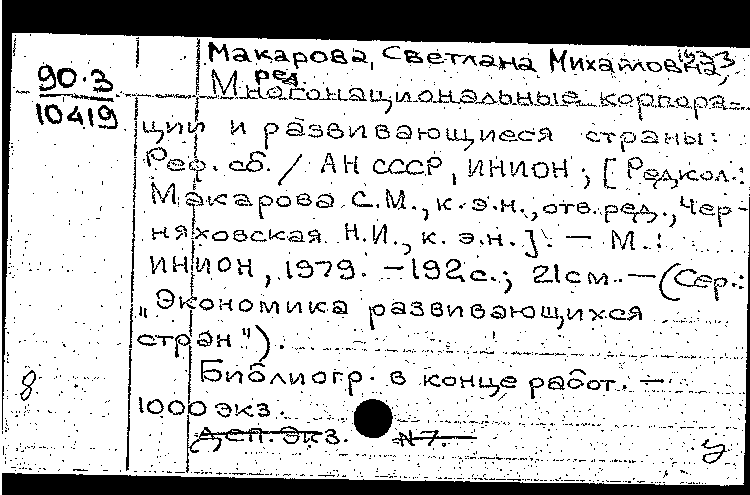 Макарова, Светлана Михайловна,
ред.
90.3
10419
Многонациональные корпора-
ции и развивающиеся страны:
Реф. сб. / АН СССР, ИНИОН; [Редкол.:
Макарова С.М., к.э.н., отв. ред., Чер-
няховская Н.И., к.э.н.]. — М.:
ИНИОН, 1979. — 192 с.; 21 см. — (Сер.:
„Экономика развивающихся
стран").
Библиогр. в конце работ. —
1000 экз.
Деп. экз. N 7.